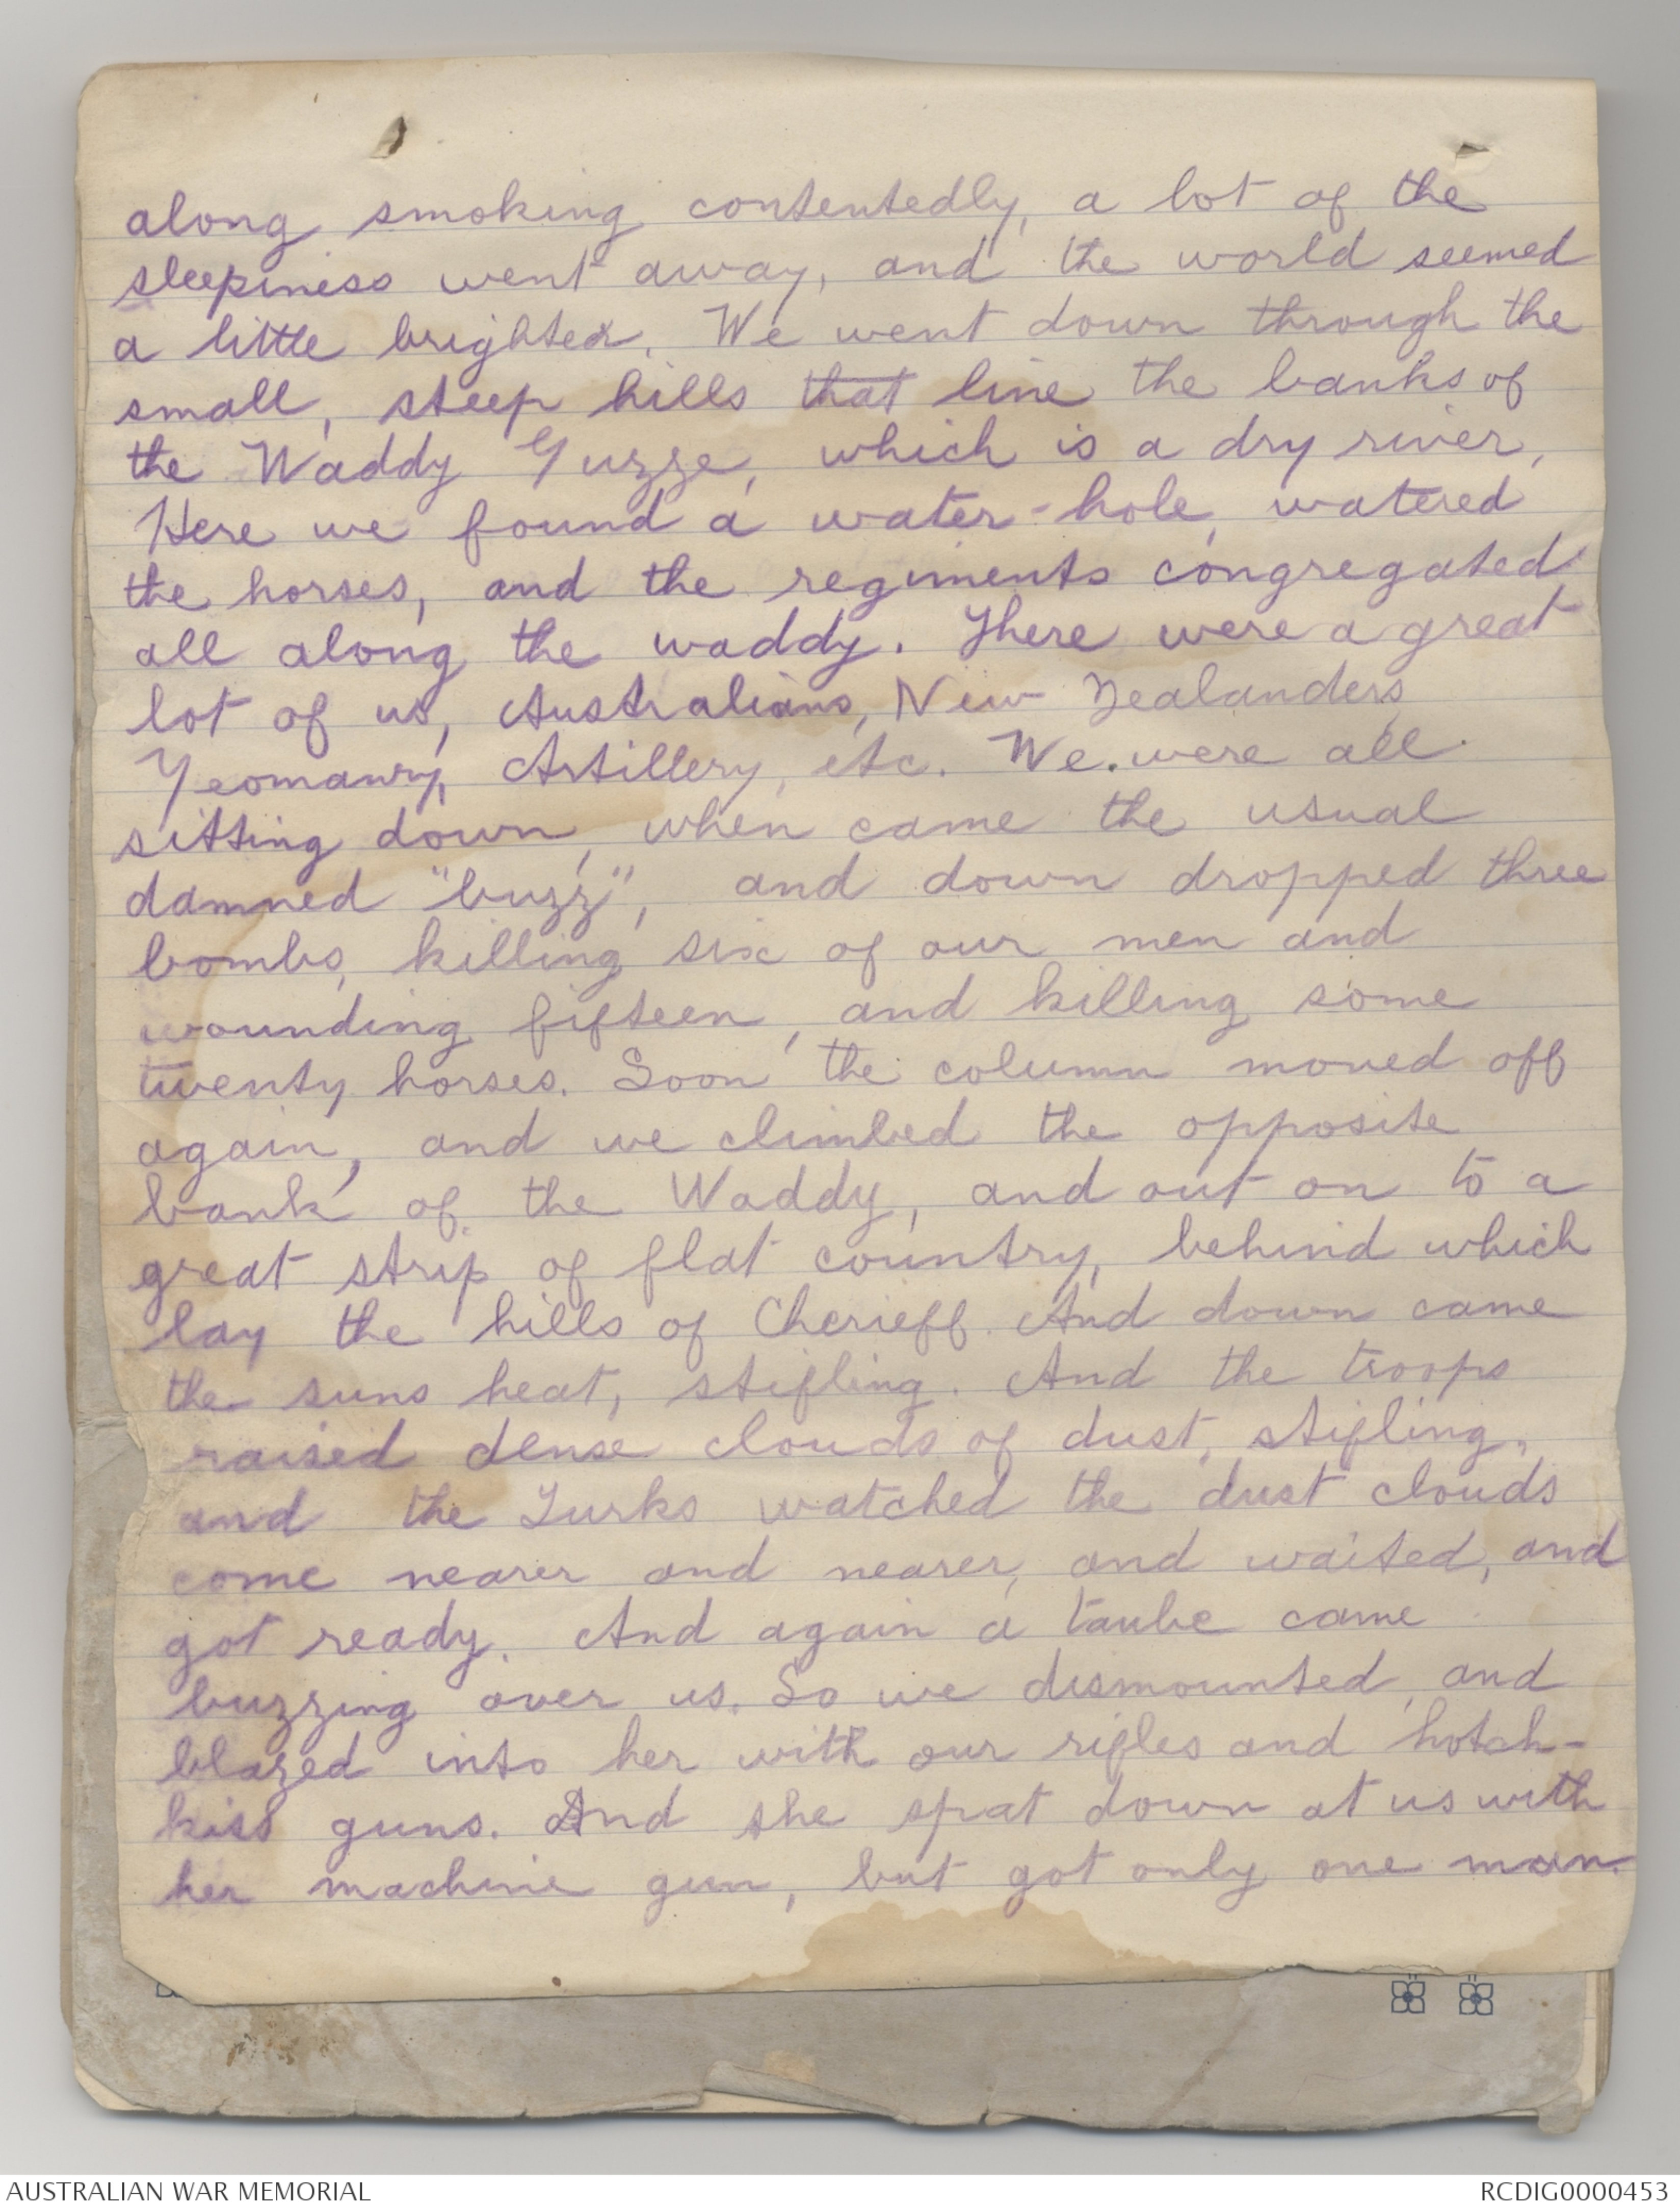 along smoking contentedly, a lot of the
sleepiness went away, and the world seemed
a little brighter. We went down through the
small, steep hills that line the banks of
the Waddy Guzze, which is a dry river,
Here we found a water-hole, watered
the horses, and the regiments congregated
all along the waddy. There were a great
lot of us, Australians, New Zealanders,
Yeomanry, Artillery, etc. We were all
sitting down, when came the usual
damned "buzz", and down dropped three
bombs, killing six of our men and
wounding fifteen, and killing some
twenty horses. Soon the column moved off
again, and we climbed the opposite
bank of the Waddy, and out on to a
great strip of flat country, behind which
lay the hills of Cherieff. And down came
the suns heat, stifling. And the troops
raised dense clouds of dust, stifling,
and the Turks watched the dust clouds
come nearer and nearer, and waited, and
got ready. And again a taube came
buzzing over us. So we dismounted, and
blazed into her with our rifles and hotch-
kiss guns. And she spat down at us with
her machine gun, but got only one man.
AUSTRALIAN WAR MEMORIAL
RCDIG0000453